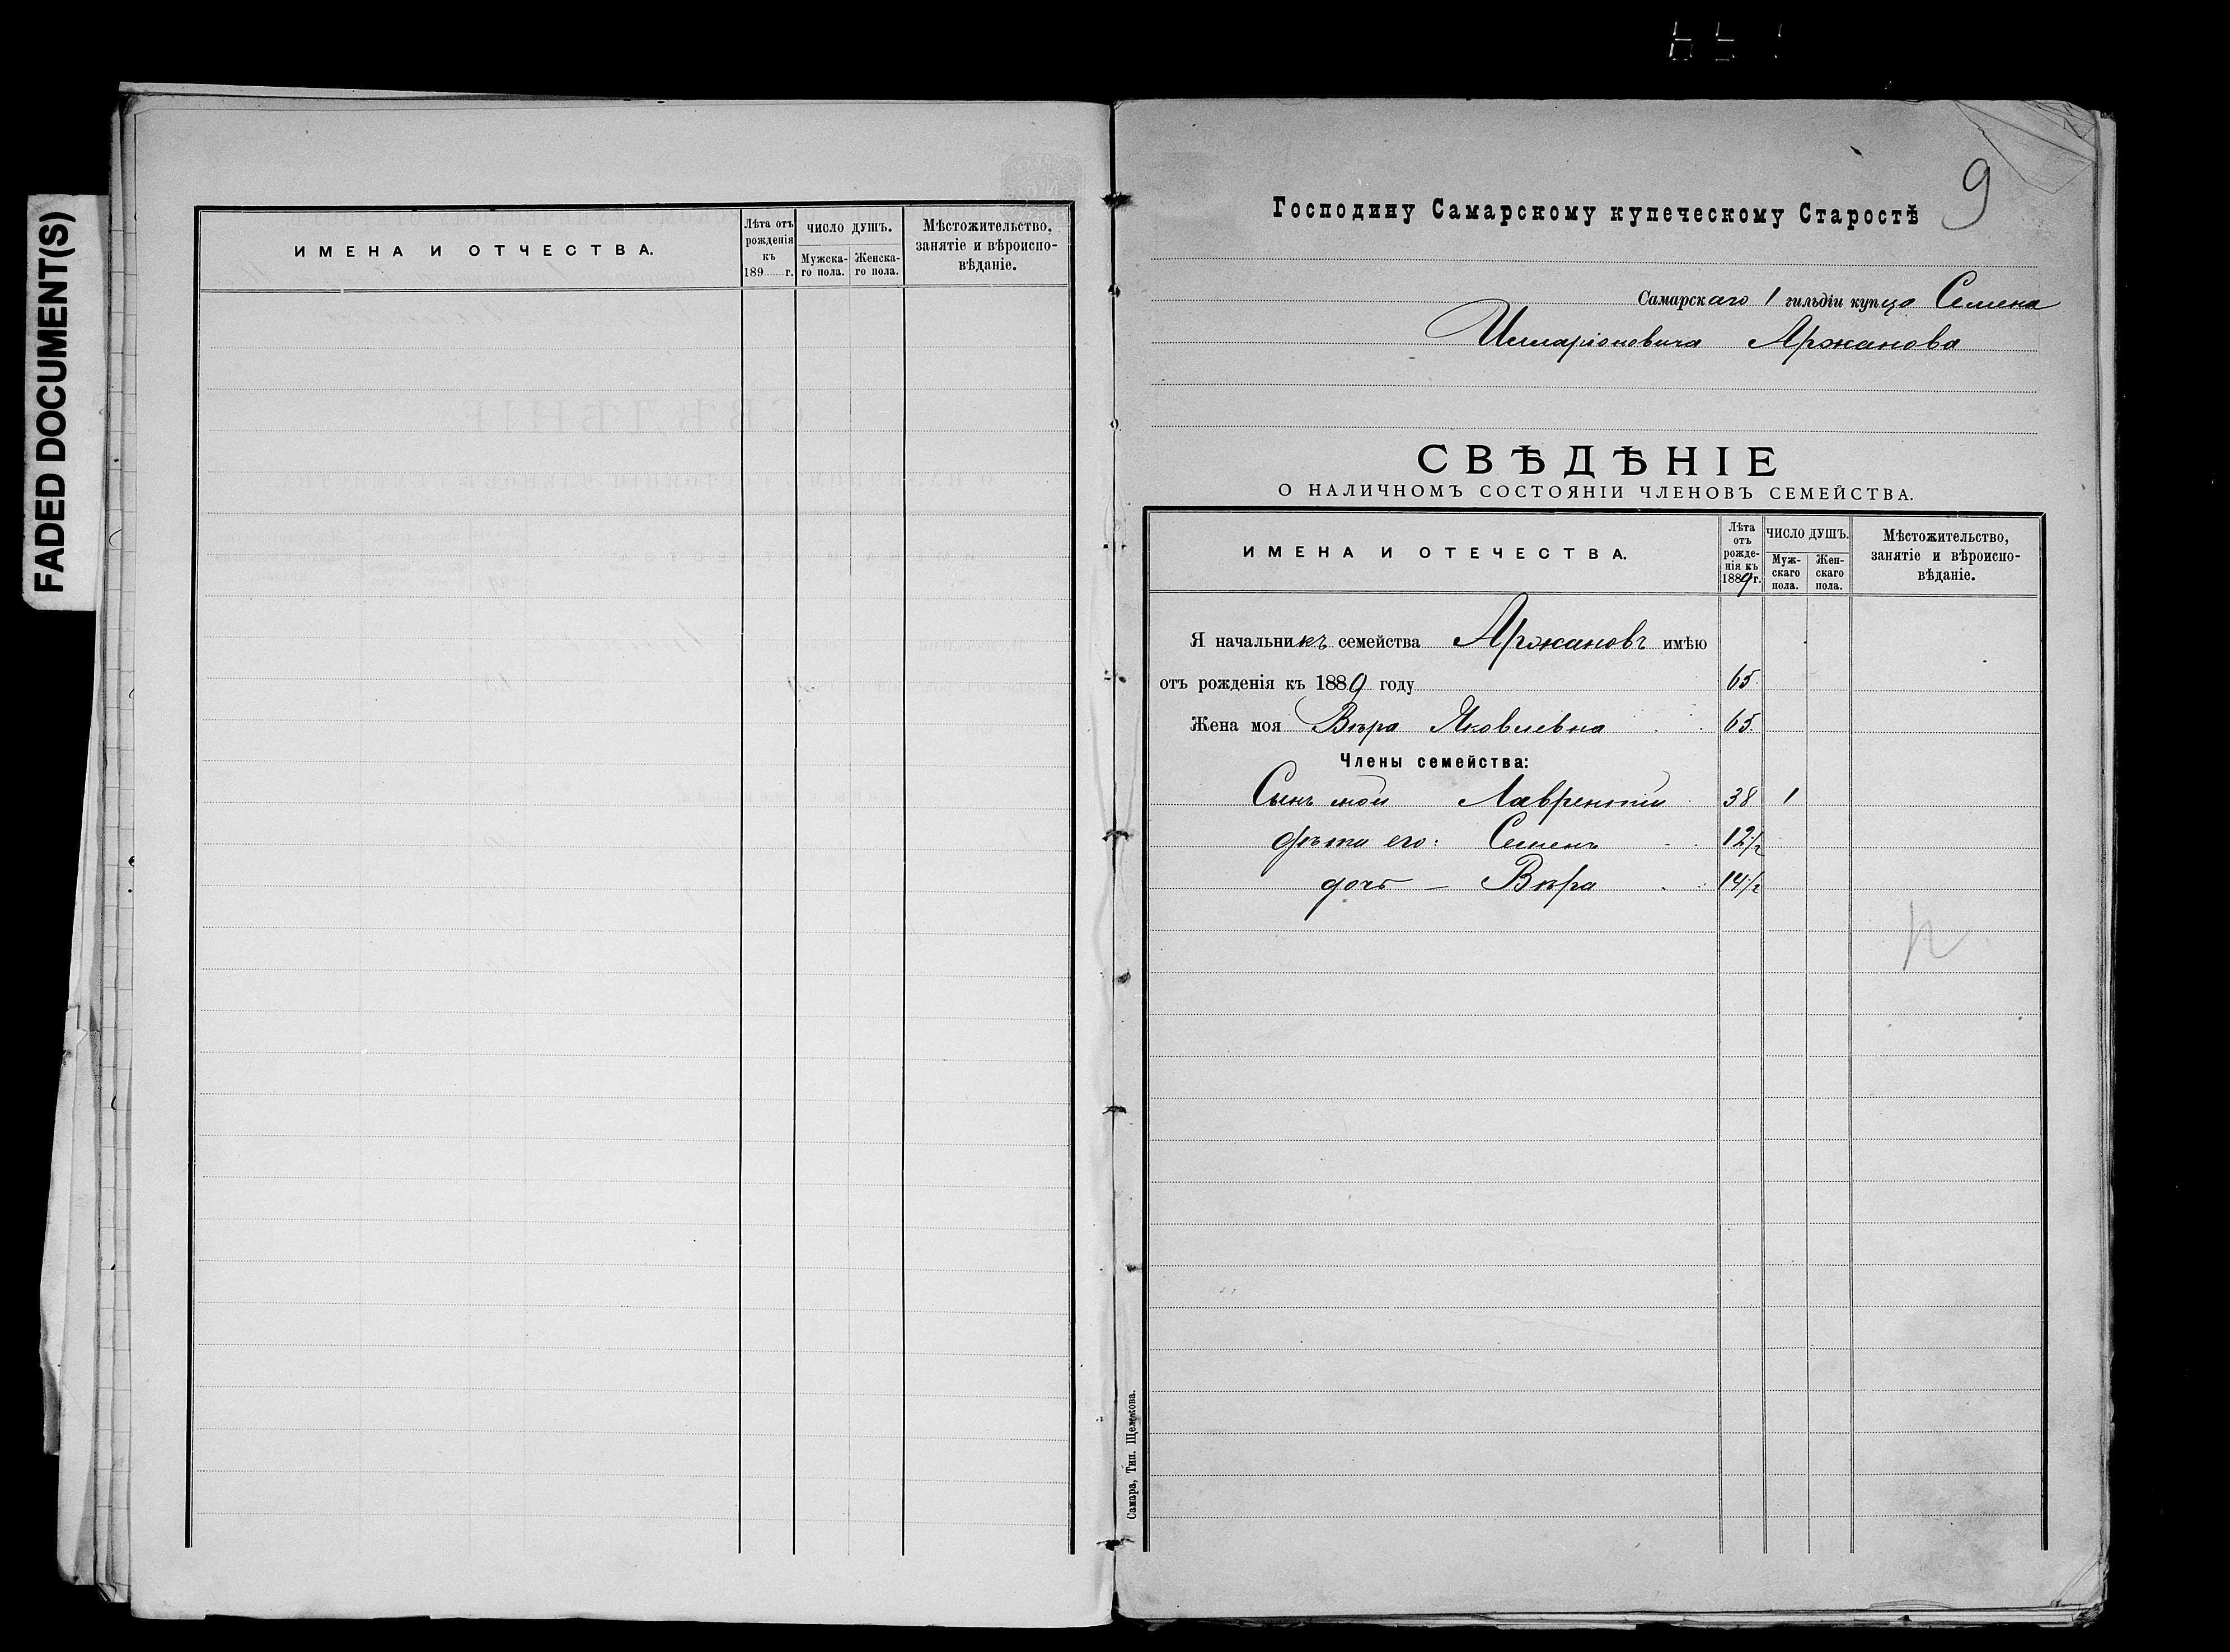 FADED DOCUMENT(S)
ИМЕНА И ОТЧЕСТВА.
Лѣта отъ рожденія къ 189 г.
ЧИСЛО ДУШЪ.
Мужска-го пола.
Женска-го пола.
Мѣстожительство, занятіе и вѣроиспо-вѣданіе.
9
Господину Самарскому купеческому Старостѣ
Самарскаго 1 гильдіи купца Семена
Иларіоновича Аржанова
СВѢДѢНІЕ
О НАЛИЧНОМЪ СОСТОЯНІИ ЧЛЕНОВЪ СЕМЕЙСТВА.
ИМЕНА И ОТЕЧЕСТВА.
Лѣта отъ рожде-нія къ 1889 г.
ЧИСЛО ДУШЪ.
Муж-скаго пола.
Жен-скаго пола.
Мѣстожительство, занятіе и вѣроиспо-вѣданіе.
Я начальникъ семейства Аржановъ имѣю
отъ рожденія къ 1889 году 65
Жена моя Вѣра Яковлевна 65
Члены семейства:
Сынъ мой Лаврентій 38 1
дѣти его: Семенъ 12 1/2
дочь — Вѣра 14 1/2
Самара, Тип. Щелокова.